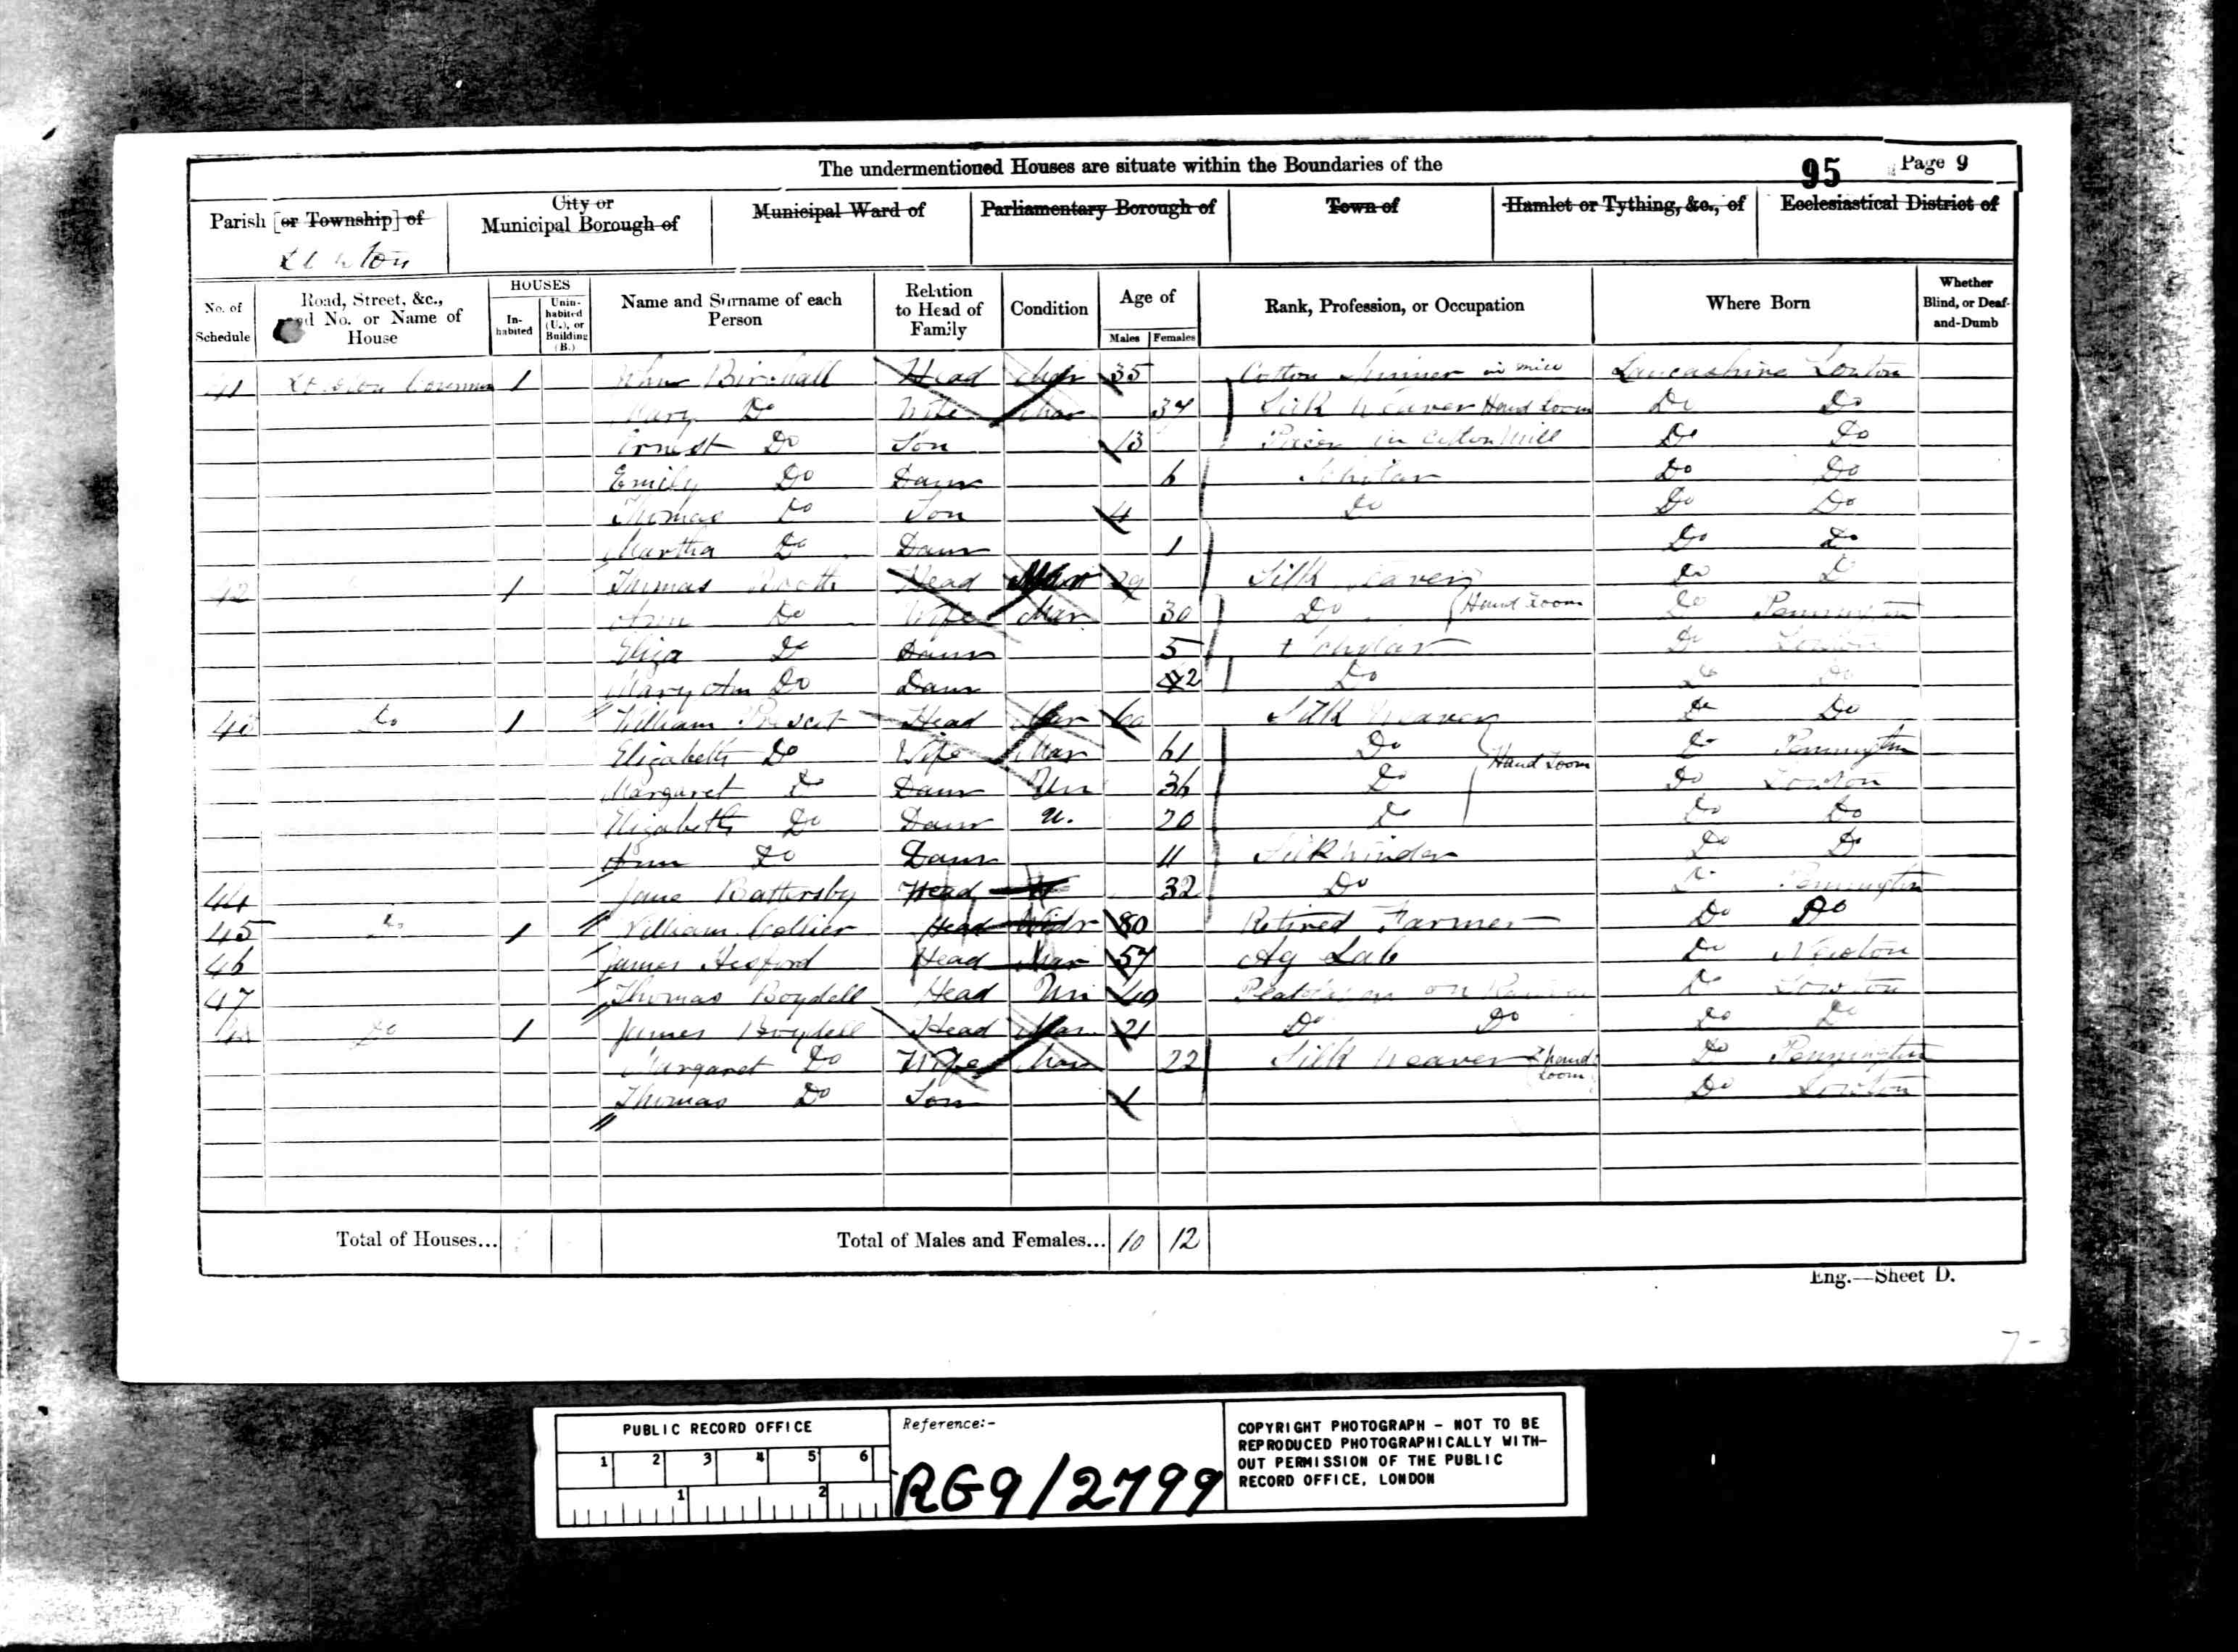 The undermentioned Houses are situate within the Boundaries of the
95 Page 9
Parish [or Township] of
City or Municipal Borough of
Municipal Ward of
Parliamentary Borough of
Town of
Hamlet or Tything, &c., of
Ecclesiastical District of
No. of Schedule
Road, Street, &c., and No. or Name of House
HOUSES
In-habited
Unin-habited (U.), or Building (B.)
Name and Surname of each Person
Relation to Head of Family
Condition
Age of
Males Females
Rank, Profession, or Occupation
Where Born
Whether Blind, or Deaf-and-Dumb
41 1 Birchall Head Mar 35 Cotton in mill Lancashire Lowton
Mary Do Wife Mar 37 Silk Weaver Hand Loom Do Do
Ernest Do Son 13 in Cotton Mill Do Do
Emily Do Daur 6 Scholar Do Do
Thomas Do Son 4 Do Do Do
Martha Do Daur 1 Do Do
42 1 Thomas Head Mar 29 Silk Weaver Do D
Ann Do Wife Mar 30 Do Hand Loom Do Pennington
Eliza Do Daur 5 Scholar Do Lowton
Mary Ann Do Daur 2 Do Do Do
Do 1 William Head Mar 60 Silk Weaver Do Do
Elizabeth Do Wife Mar 61 Do Hand Loom Do Pennington
Margaret Do Daur Un 36 Do Do Lowton
Elizabeth Do Daur U. 20 Do Do Do
Ann Do Daur 11 Silk winder Do Do
44 Jane Battersby Head 32 Do Do Pennington
45 Do 1 William Collier Head Widr 80 Retired Farmer Do Do
46 James Hesford Head Mar 57 Ag Lab Do Newton
47 Thomas Boydell Head Un 40 on Do Lowton
Do 1 James Boydell Head Mar 21 Do Do Do Do
Margaret Do Wife Mar 22 Silk Weaver hand Loom Do Pennington
Thomas Do Son 1 Do Lowton
Total of Houses...
Total of Males and Females... 10 12
Eng.—Sheet D.
PUBLIC RECORD OFFICE
1 2 3 4 5 6
1 2
Reference:-
RG9/2799
COPYRIGHT PHOTOGRAPH - NOT TO BE
REPRODUCED PHOTOGRAPHICALLY WITH-
OUT PERMISSION OF THE PUBLIC
RECORD OFFICE, LONDON